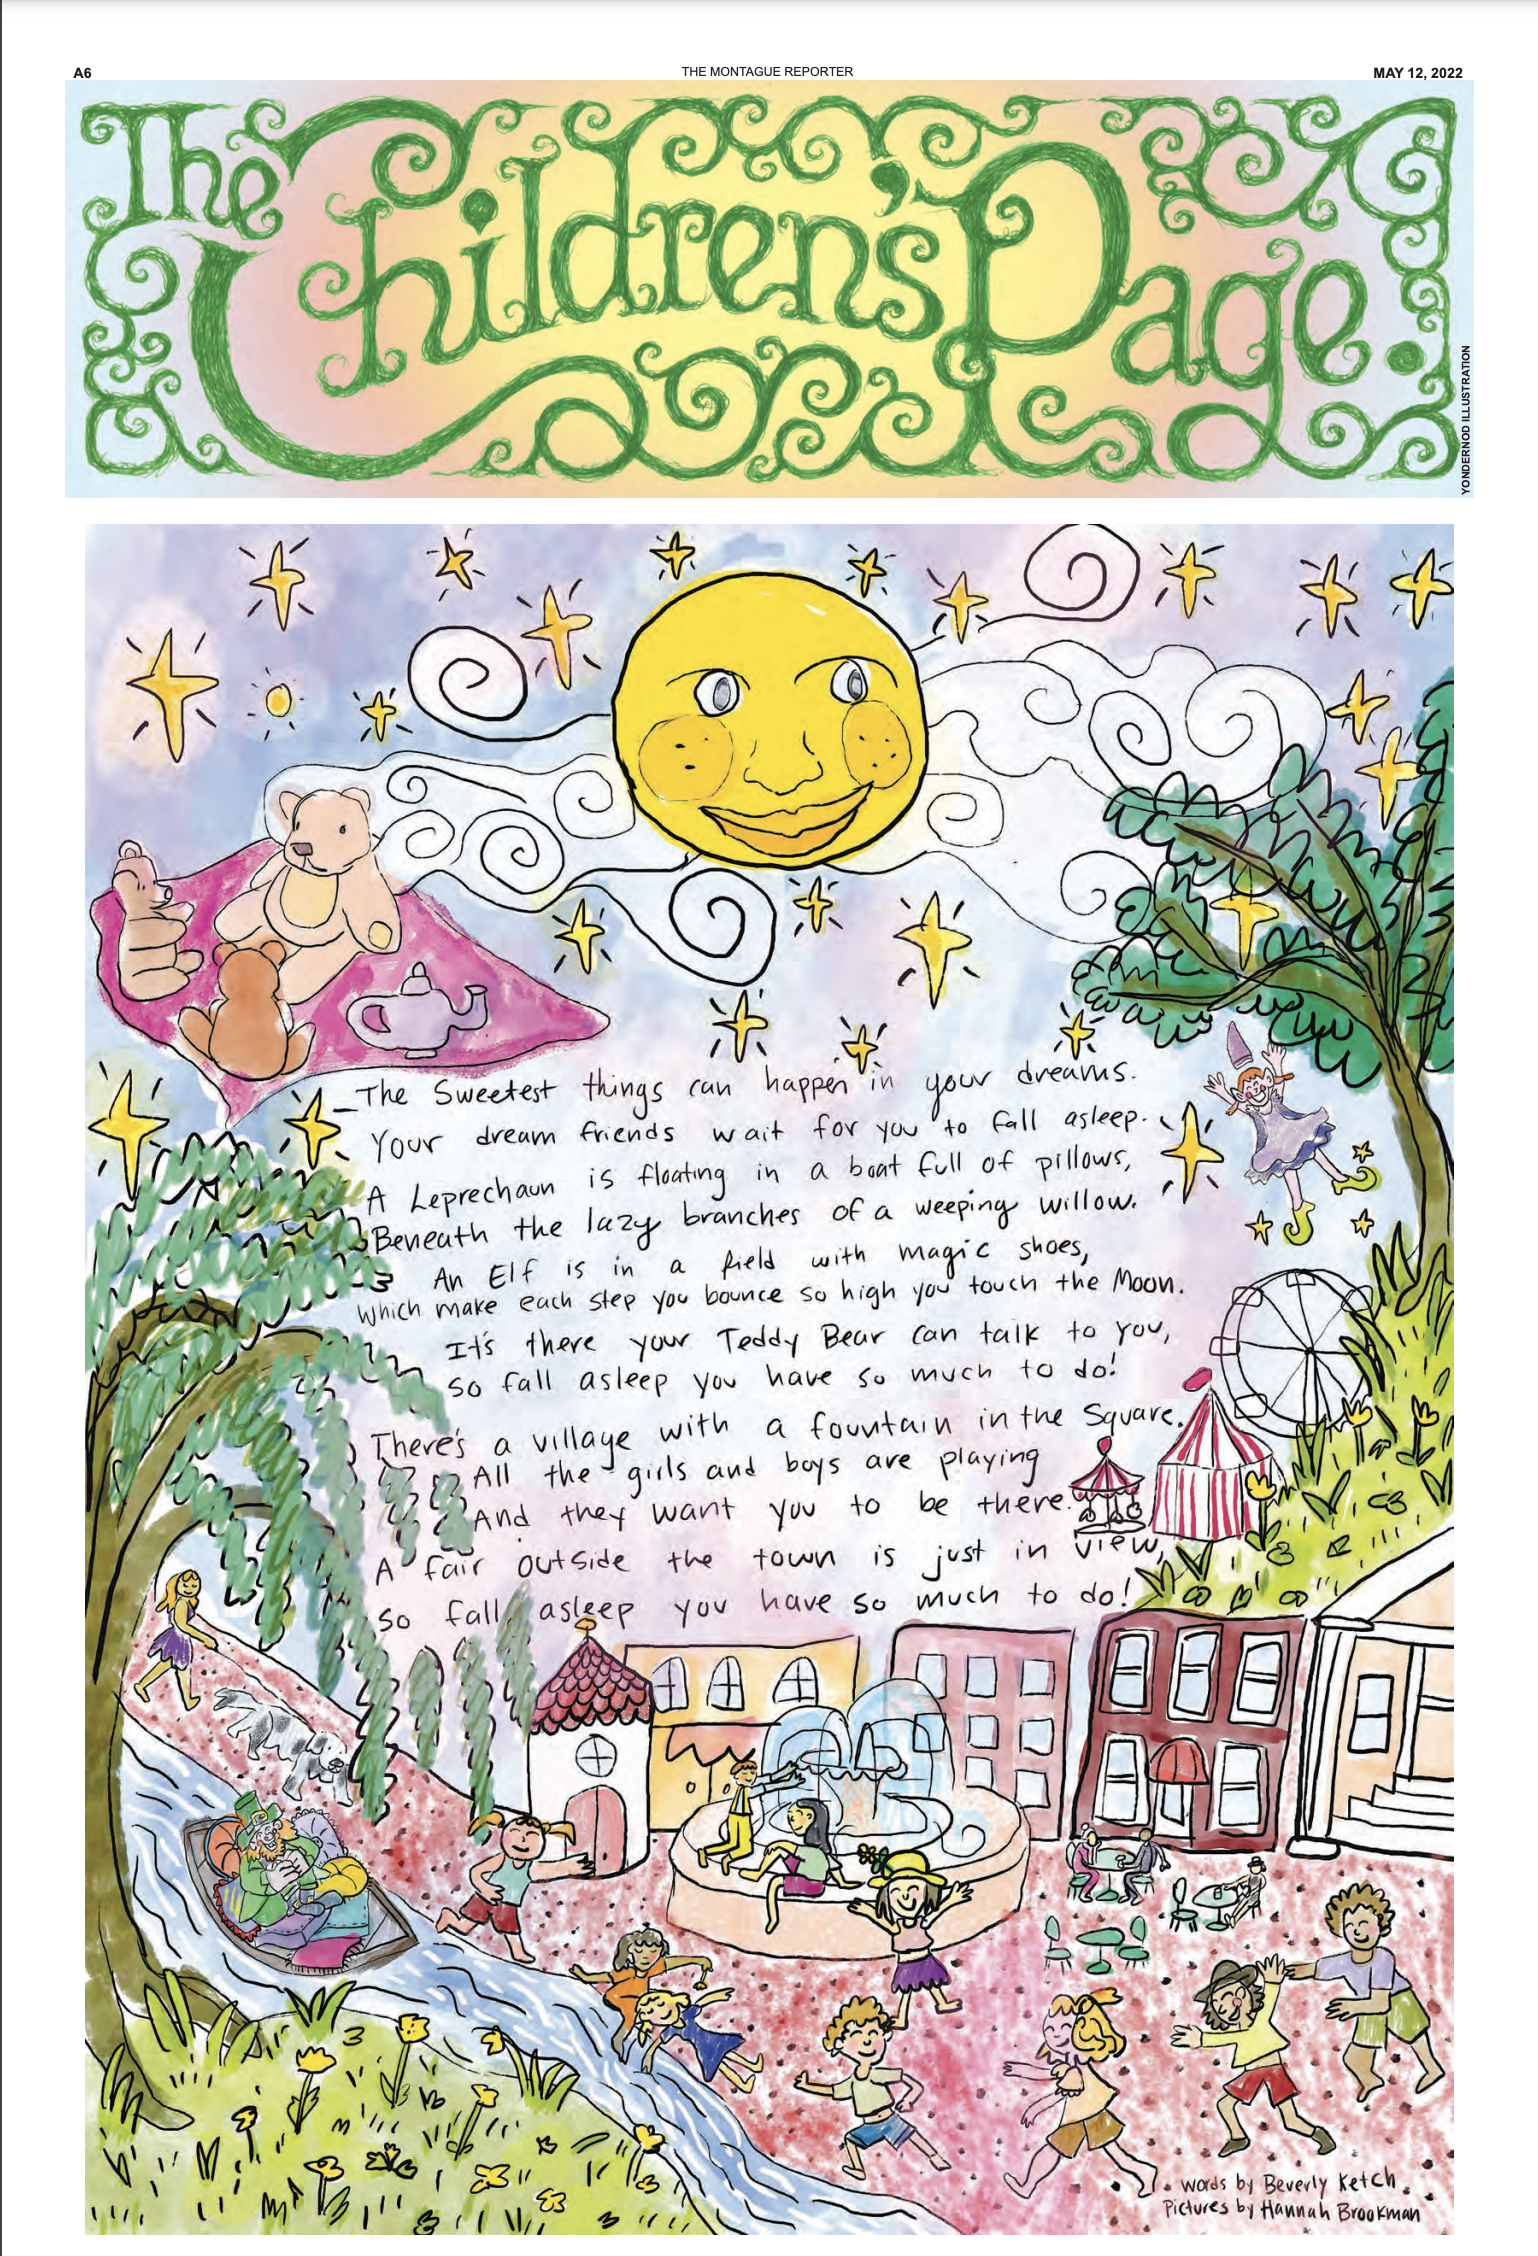 A6
THE MONTAGUE REPORTER
MAY 12, 2022
The Children's Page.
YONDERNOD ILLUSTRATION
The Sweetest things can happen in your dreams.
Your dream friends wait for you to fall asleep.
A Leprechaun is floating in a boat full of pillows,
Beneath the lazy branches of a weeping willow.
An Elf is in a field with magic shoes,
which make each step you bounce so high you touch the Moon.
It's there your Teddy Bear can talk to you,
so fall asleep you have so much to do!
There's a village with a fountain in the Square.
All the girls and boys are playing
And they want you to be there.
A fair outside the town is just in view,
so fall asleep you have so much to do!
words by Beverly Ketch
Pictures by Hannah Brookman